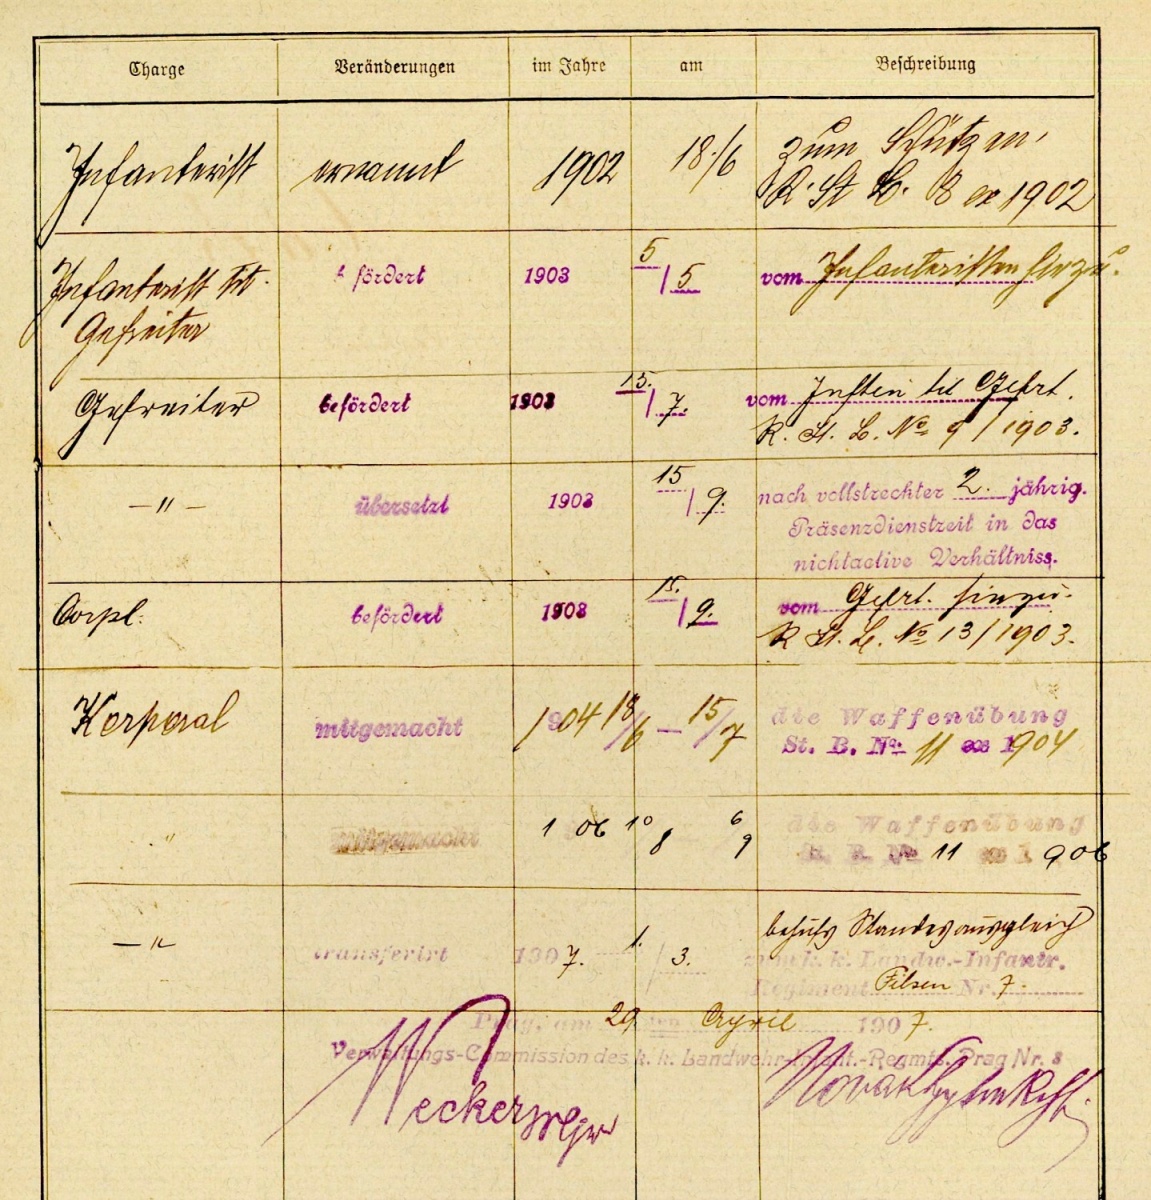 Charge Veränderungen im Jahre am Beschreibung
Infanterist ernannt 1902 18./6 zum Schützen,
R. St. B. 8 ex 1902
Infanterist tit. befördert 1903 5/5 vom Infanteristen hiezu.
Gefreiter
Gefreiter befördert 1903 15./7. vom Inften tit Gefrt.
R. St. B. No 9/1903.
—〃— übersetzt 1903 15/9. nach vollstrechter 2. jährig.
Präsenzdienstzeit in das
nichtactive Verhältniss.
Corpl. befördert 1903 15./9. vom Gefrt. hiezu.
R. St. B. No 13/1903.
Korporal mitgemacht 1904 18/6 — 15/7 die Waffenübung
St. B. No. 11 ex 1904
〃 mitgemacht 1906 10/8 6/9 die Waffenübung
St. B. No 11 ex 1906
—〃— transferirt 1907. 1./3. behufs Standesausgleich
zum k. k. Landw.-Infantr.
Regiment Pilsen Nr. 7.
Prag, am 29 ten April 1907.
Verwaltungs-Commission des k. k. Landwehr-Infant.-Regmts. Prag Nr. 8
Novak
Necker